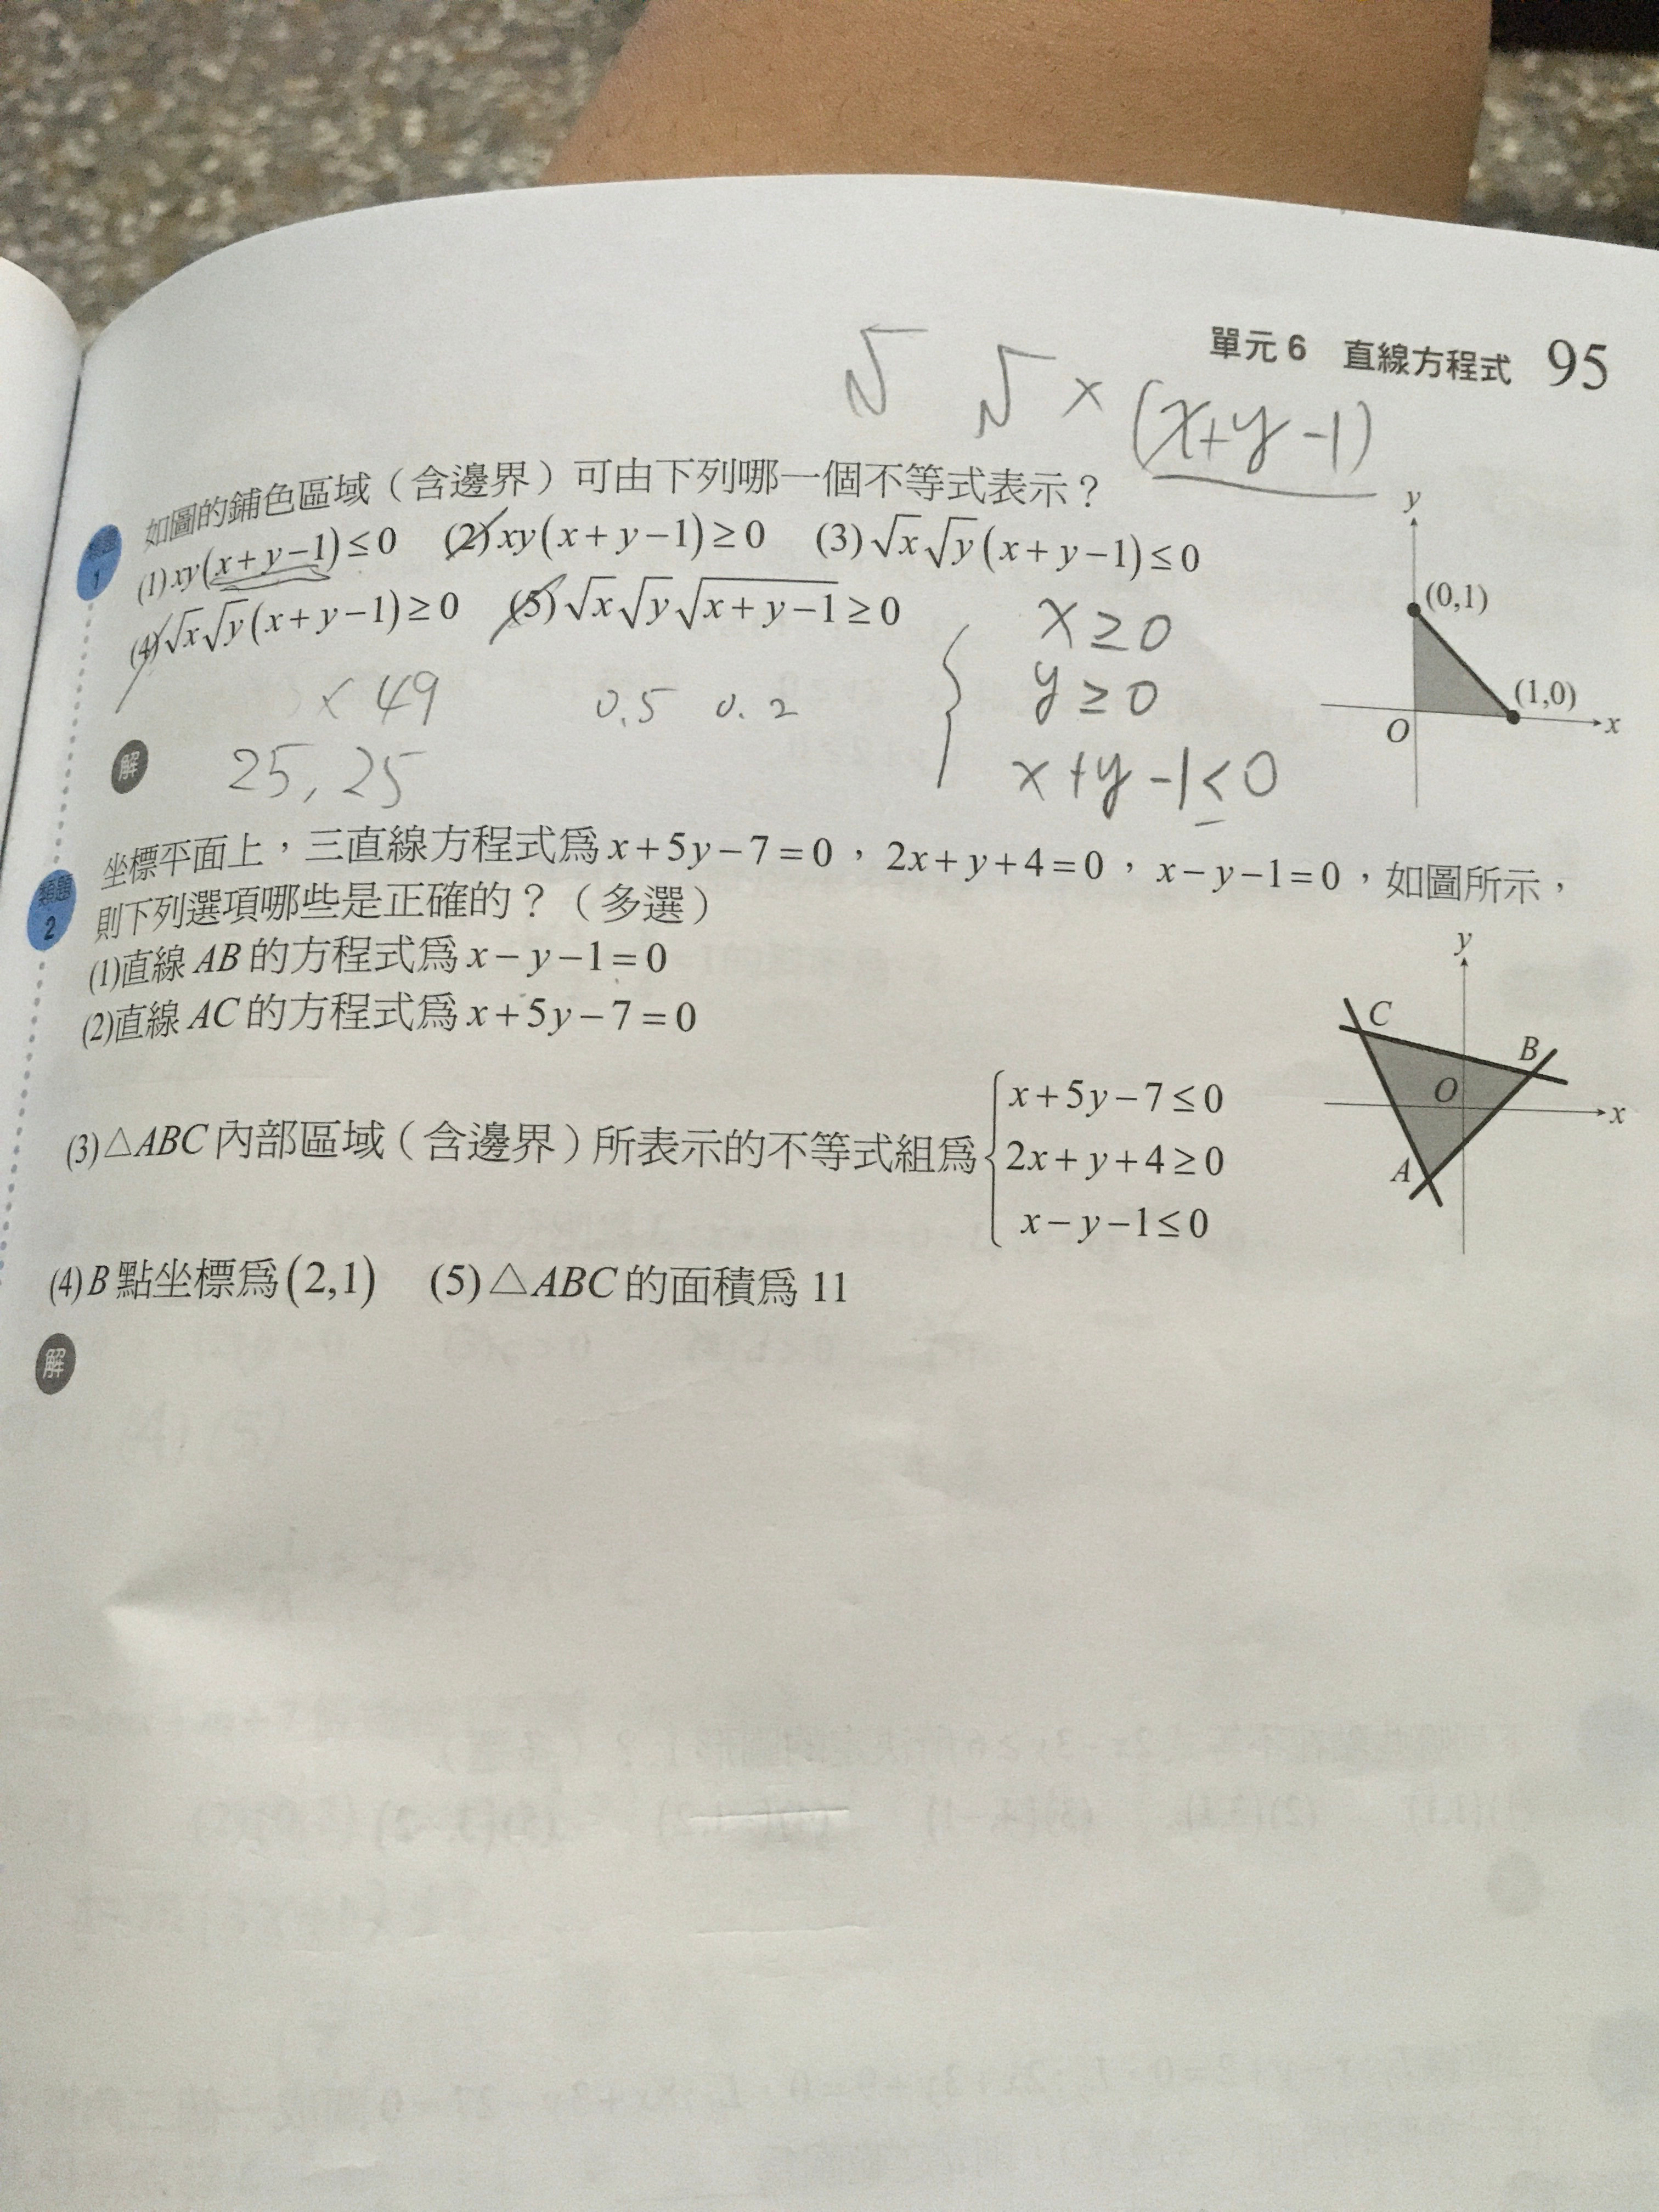 單元6 直線方程式 95
√ √ × (x+y-1)
類題1
如圖的鋪色區域（含邊界）可由下列哪一個不等式表示？
(1) xy(x+y−1)≤0 (2) xy(x+y−1)≥0 (3) √x√y(x+y−1)≤0
(4) √x√y(x+y−1)≥0 (5) √x√y√(x+y−1)≥0
y
(0,1)
(1,0)
O
x
x≥0
y≥0
x+y-1≤0
× 49 0.5 0.2
解
25, 25
類題2
坐標平面上，三直線方程式為x+5y−7=0，2x+y+4=0，x−y−1=0，如圖所示，
則下列選項哪些是正確的？（多選）
(1)直線AB的方程式為x−y−1=0
(2)直線AC的方程式為x+5y−7=0
(3)△ABC內部區域（含邊界）所表示的不等式組為
x+5y−7≤0
2x+y+4≥0
x−y−1≤0
y
C
B
O
x
A
(4)B點坐標為(2,1) (5)△ABC的面積為11
解